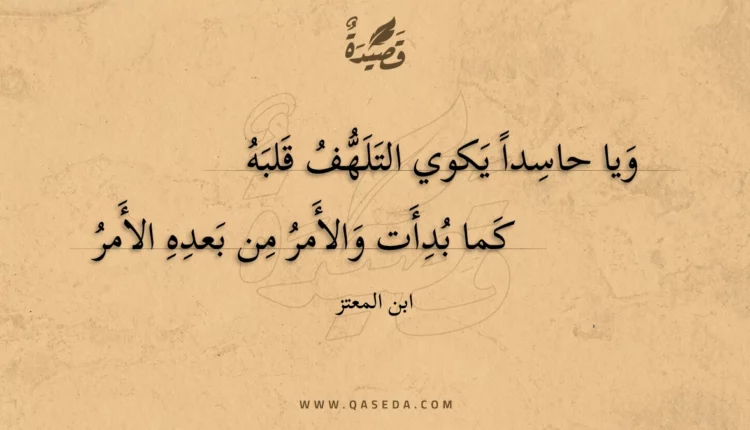 قَصِيدَةٌ
وَيا حاسِداً يَكوي التَلَهُّفُ قَلبَهُ
كَما بُدِأَت وَالأَمرُ مِن بَعدِهِ الأَمرُ
ابن المعتز
WWW.QASEDA.COM